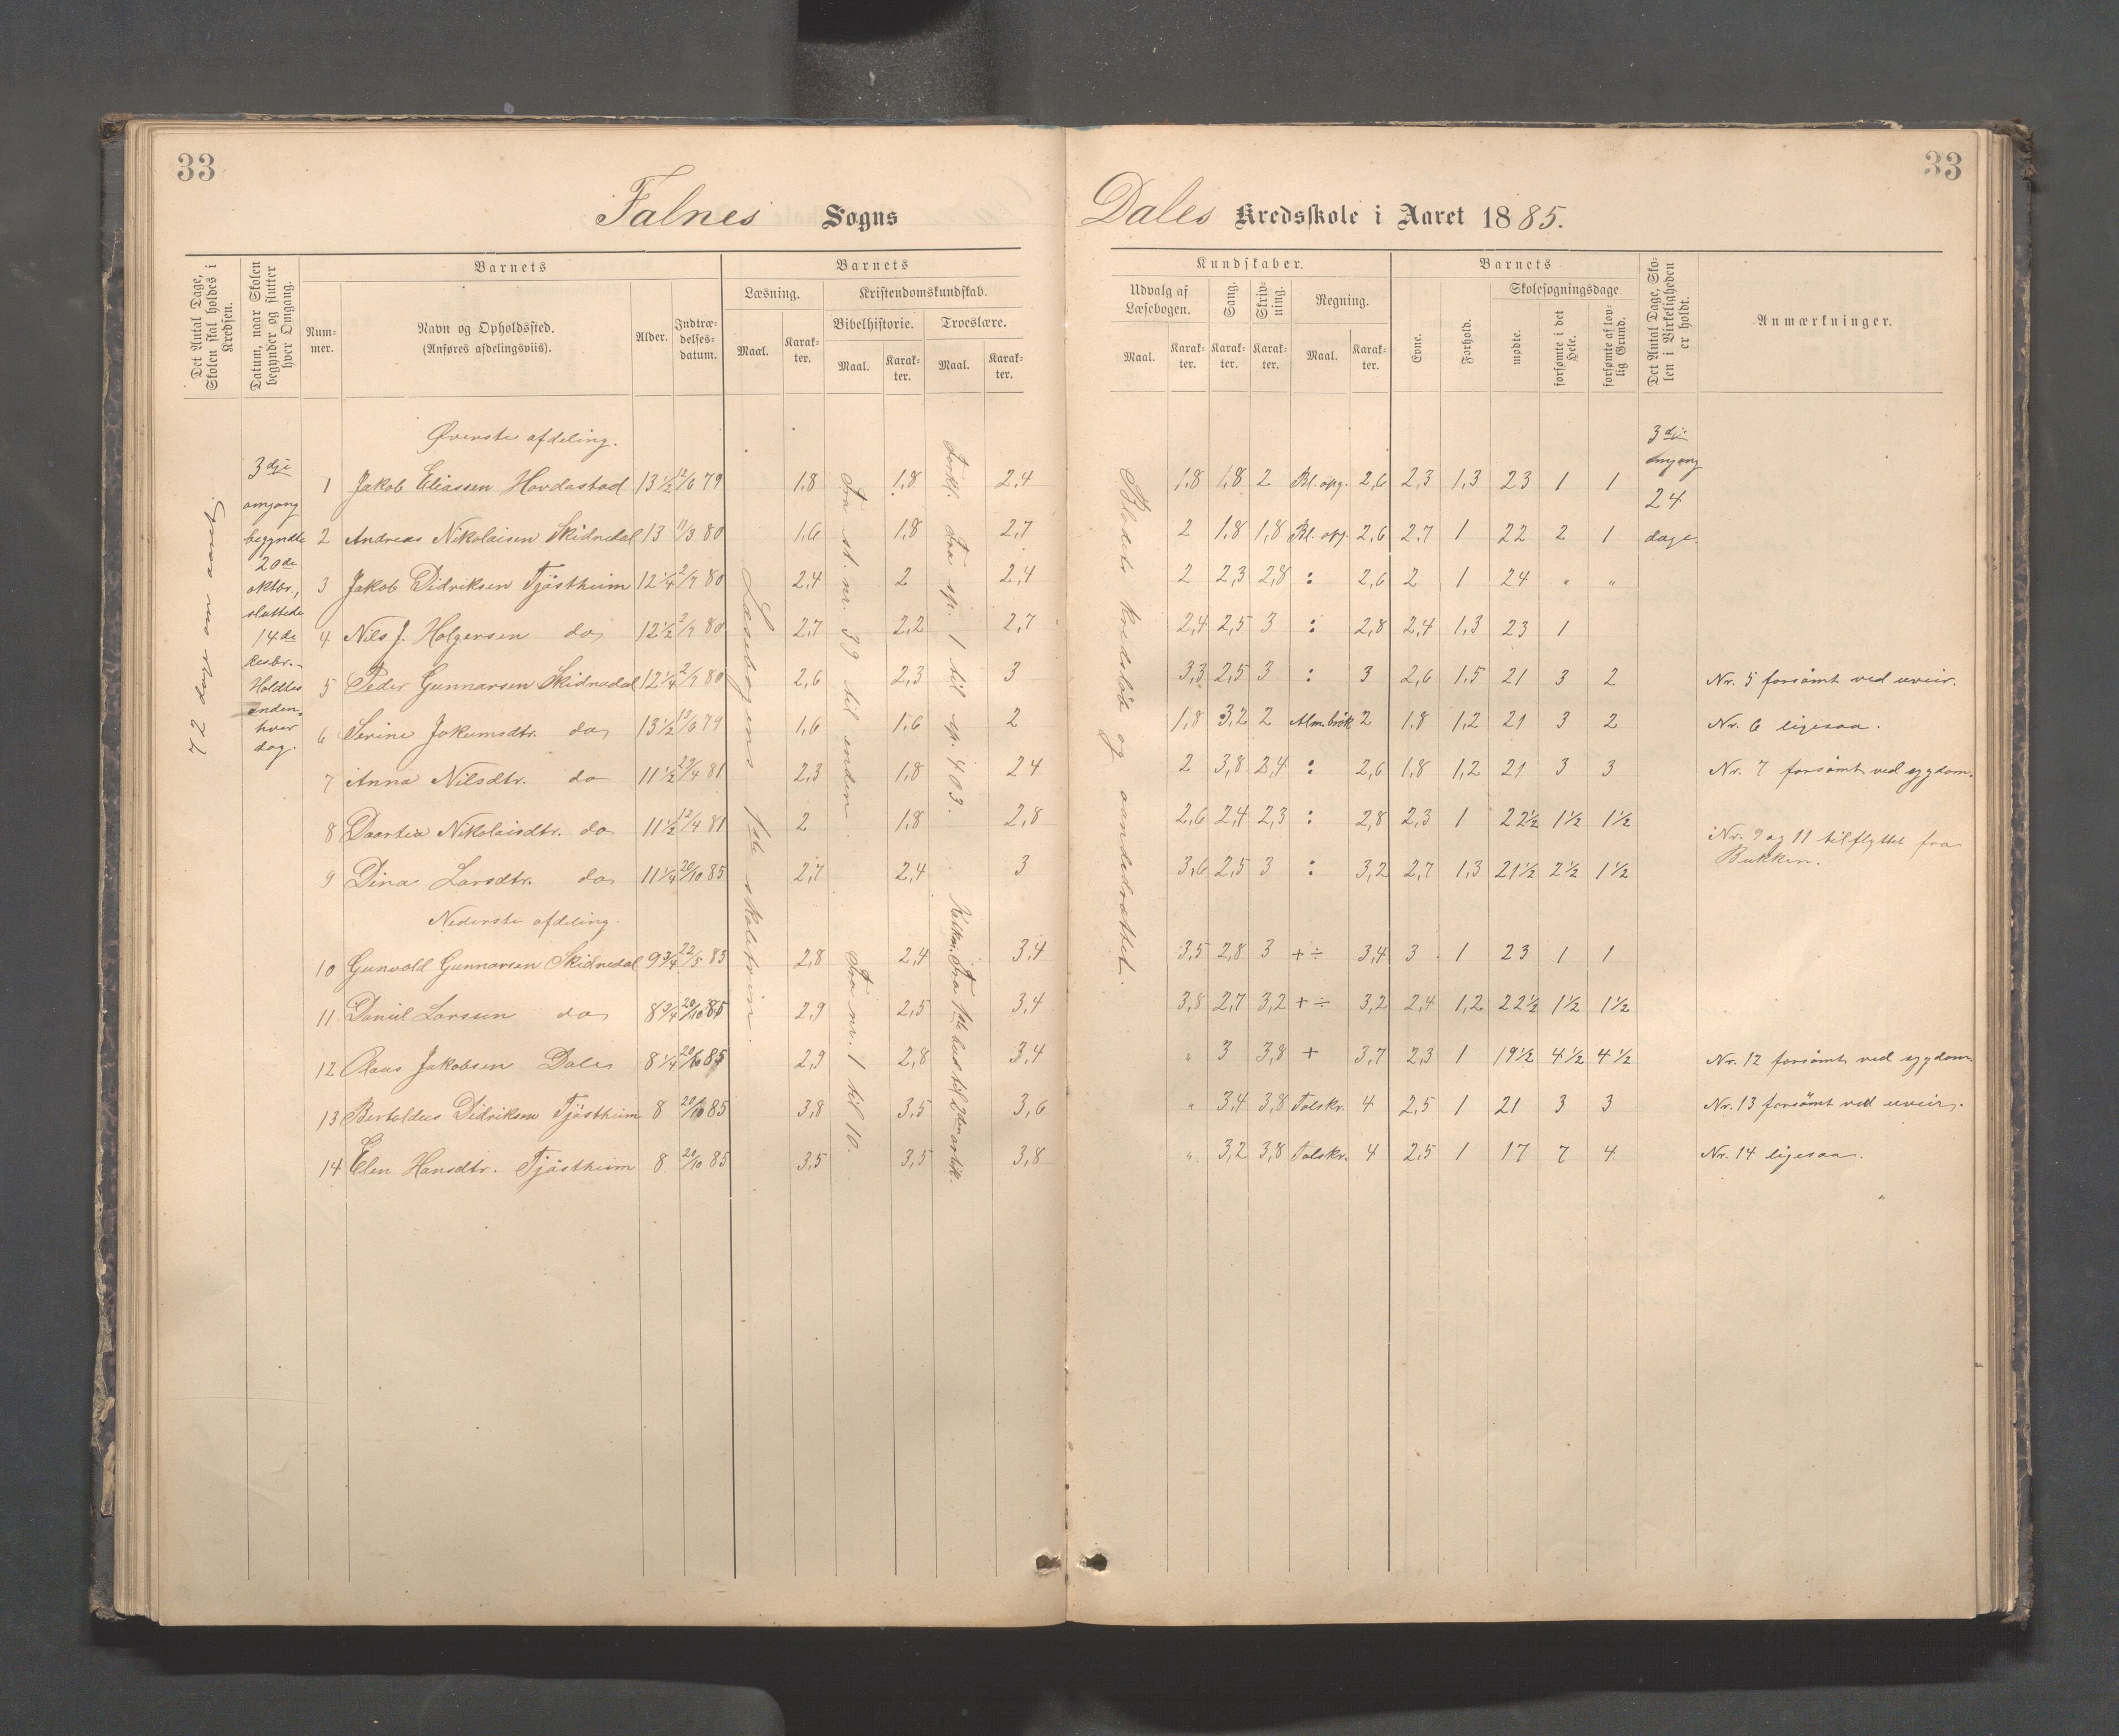 33
33
Falnes Sogns
Dales Kredsskole i Aaret 1885.
Det Antal Dage, Skolen skal holdes i Kredsen.
Datum, naar Skolen begynder og slutter hver Omgang.
Barnets
Num-mer.
Navn og Opholdssted.
(Anføres afdelingsviis).
Alder.
Indtræ-delses-datum.
Barnets
Læsning.
Maal.
Karak-ter.
Kristendomskundskab.
Bibelhistorie.
Maal.
Karak-ter.
Troeslære.
Maal.
Karak-ter.
Kundskaber.
Udvalg af Læsebogen.
Maal.
Karak-ter.
Sang.
Karak-ter.
Skriv-ning.
Karak-ter.
Regning.
Maal.
Karak-ter.
Barnets
Evne.
Forhold.
Skolesøgningsdage
mødte.
forsømte i det Hele.
forsømte af lov-lig Grund.
Det Antal Dage, Sko-len i Virkeligheden er holdt.
Anmærkninger.
3dje
omgang
begyndte
20de
oktbr.,
sluttede
14de
desbr.
Holdtes
anden
hver
dag.
Læsebogens 1ste skoletrin.
Fra st. nr. 39 til enden.
Forkl. Fra sp. 1 til sp. 403.
Fra nr. 1 til 10.
Katkm. Fra 1ste bud til 2den artik.
Blodets kredsløb og aandedrættet.
3dje
omgang
24
dage.
Øverste afdeling.
1 Jakob Eliassen Hovdastad 13 1/2 12/6 79 1,8 1,8 2,4 1,8 1,8 2 Bl. opg. 2,6 2,3 1,3 23 1 1
2 Andreas Nikolaisen Skidnedal 13 11/3 80 1,6 1,8 2,7 2 1,8 1,8 Bl. opg. 2,6 2,7 1 22 2 1
3 Jakob Didriksen Tjöstheim 12 1/4 2/7 80 2,4 2 2,4 2 2,3 2,8 : 2,6 2 1 24 " "
4 Nils J. Holgersen do 12 1/2 2/7 80 2,7 2,2 2,7 2,4 2,5 3 : 2,8 2,4 1,3 23 1
5 Peder Gunnarsen Skidnedal 12 1/4 2/7 80 2,6 2,3 3 3,3 2,5 3 : 3 2,6 1,5 21 3 2 Nr. 5 forsömt ved uveir.
6 Serine Jokumsdtr. do 13 1/2 12/6 79 1,6 1,6 2 1,8 3,2 2 Alm. brök 2 1,8 1,2 21 3 2 Nr. 6 ligesaa.
7 Anna Nilsdtr. do 11 1/2 29/4 81 2,3 1,8 2 4 2 3,8 2,4 : 2,6 1,8 1,2 21 3 3 Nr. 7 forsömt ved sygdom.
8 Daartea Nikolaisdtr. do 11 1/2 12/4 81 2 1,8 2,8 2,6 2,4 2,3 : 2,8 2,3 1 22 1/2 1 1/2 1 1/2
Nr. 9 og 11 tilflyttet fra
Bukken.
9 Dina Larsdtr. do 11 1/4 20/10 85 2,7 2,4 3 3,6 2,5 3 : 3,2 2,7 1,3 21 1/2 2 1/2 1 1/2
Nederste afdeling.
10 Gunvald Gunnarsen Skidnedal 9 3/4 22/5 83 2,8 2,4 3,4 3,5 2,8 3 + ÷ 3,4 3 1 23 1 1
11 Daniel Larssen do 8 3/4 20/10 85 2,9 2,5 3,4 3,8 2,7 3,2 + ÷ 3,2 2,4 1,2 22 1/2 1 1/2 1 1/2
12 Claus Jakobsen Dale 8 1/4 20/10 85 2,9 2,8 3,4 " 3 3,8 + 3,7 2,3 1 19 1/2 4 1/2 4 1/2 Nr. 12 forsömt ved sygdom
13 Bertoldus Didriksen Tjöstheim 8 20/10 85 3,8 3,5 3,6 " 3,4 3,8 Talskr. 4 2,5 1 21 3 3 Nr. 13 forsömt ved uveir.
14 Elen Hansdtr. Tjöstheim 8 20/10 85 3,5 3,5 3,8 " 3,2 3,8 Talskr. 4 2,5 1 17 7 4 Nr. 14 ligesaa.